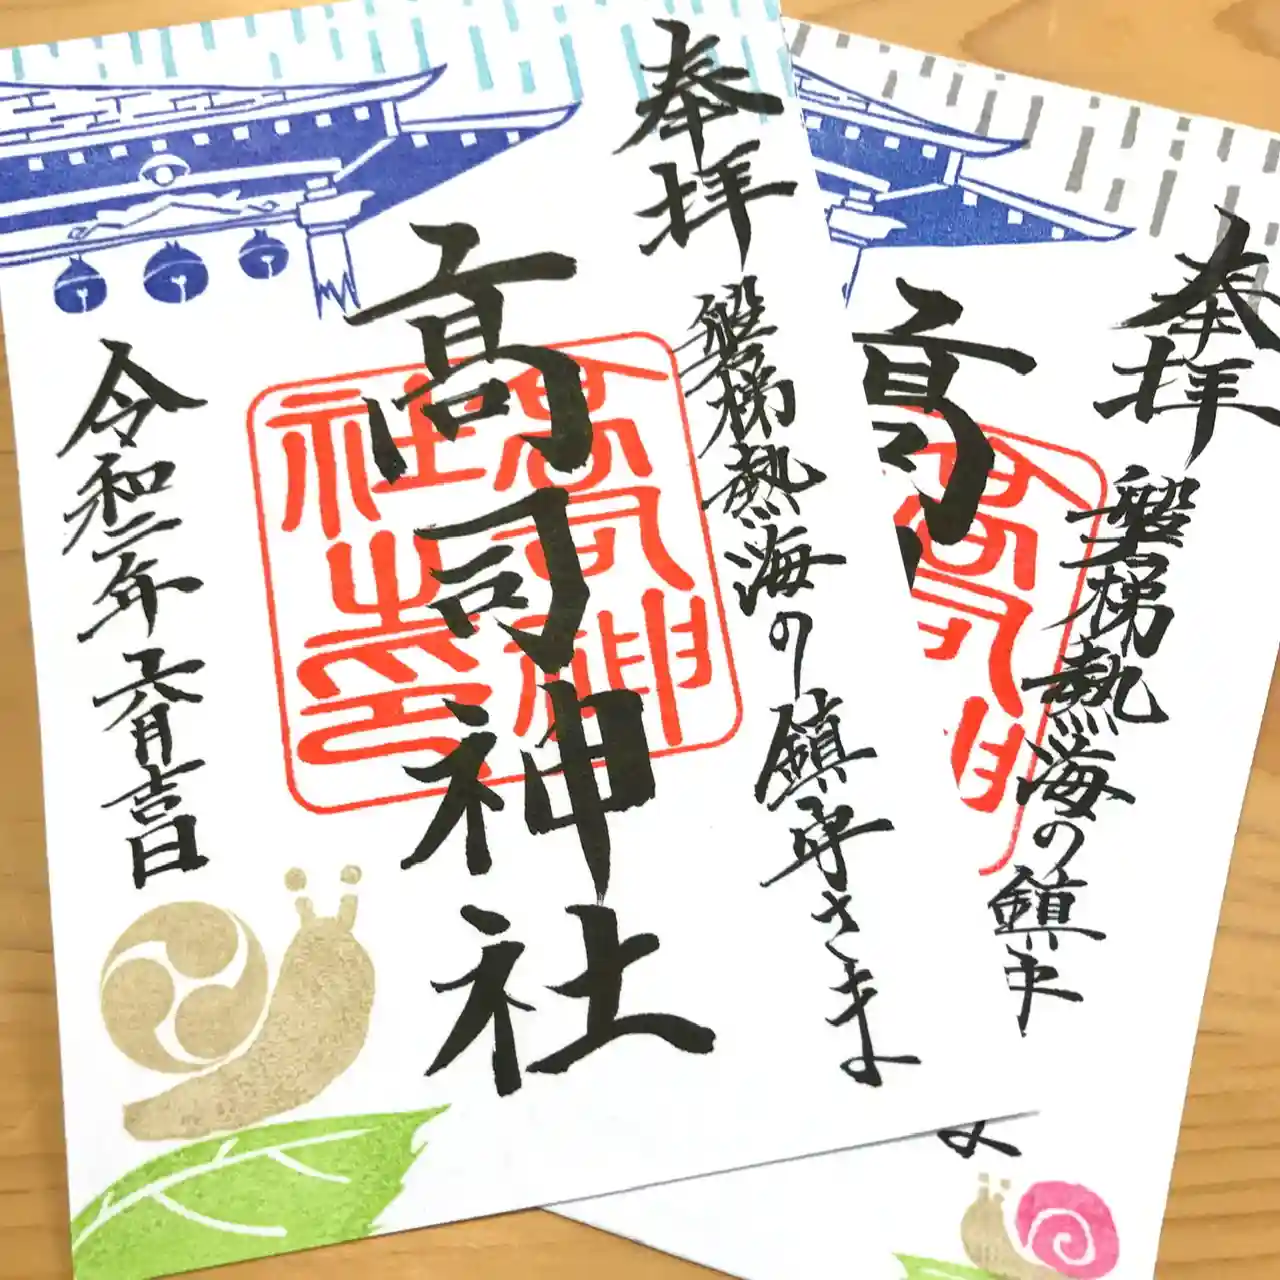 奉拝
磐梯熱海の鎮守さま
高司神社
高司神社之印
令和二年六月吉日
奉拝
磐梯熱海の鎮守
ま
高
高司神